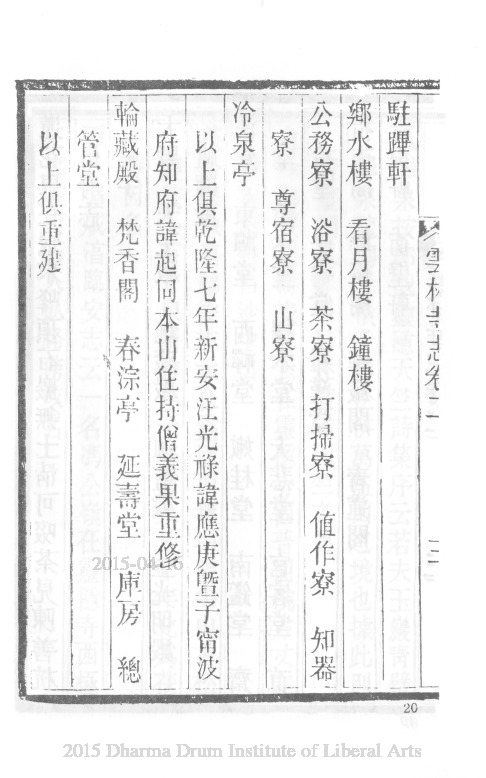 雲林寺志卷二
駐蹕軒
鄉水樓　看月樓　鐘樓
公務寮　浴寮　茶寮　打掃寮　值作寮　知器
寮　尊宿寮　山寮
冷泉亭
以上俱乾隆七年新安汪光祿諱應庚曁子甯波
府知府諱起同本山住持僧義果重修
輪藏殿　梵香閣　春淙亭　延壽堂　庫房　總
管堂
以上俱重建
2015-04-16
20
2015 Dharma Drum Institute of Liberal Arts